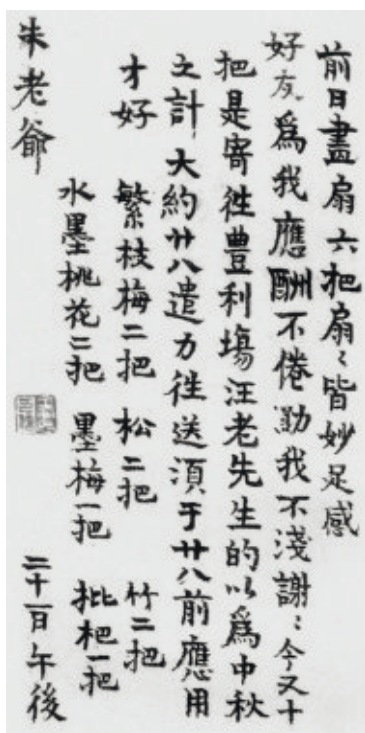 前日盡扇六把扇〻皆妙足感
好友爲我應酬不倦勤我不淺謝〻今又十
把是寄往豐利塲汪老先生的以爲中秋
之計大約廿八遣力往送須于廿八前應用
才好 繁枝梅二把 松二把 竹二把
水墨桃花二把 墨梅一把 枇杷一把
朱老爺 二十一日午後